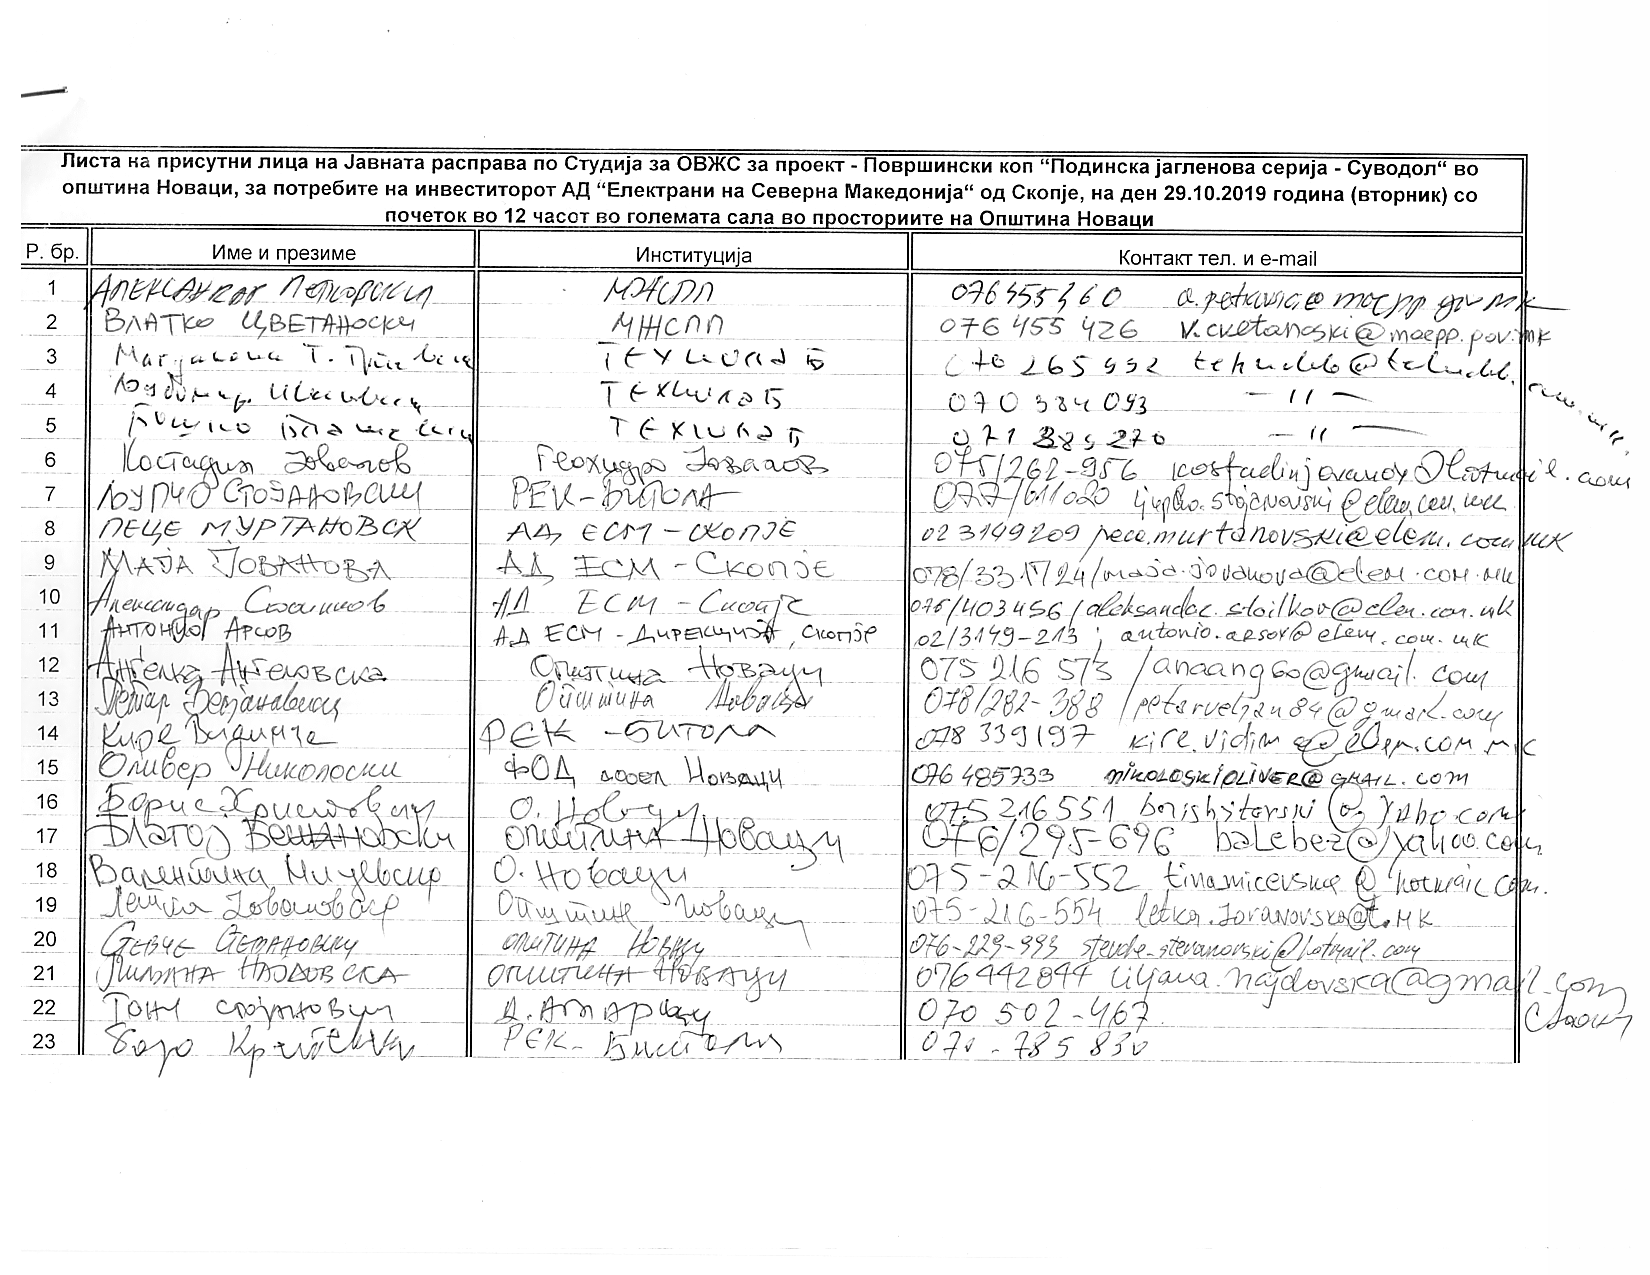 Листа на присутни лица на Јавната расправа по Студија за ОВЖС за проект - Површински коп “Подинска јагленова серија - Суводол“ во
општина Новаци, за потребите на инвеститорот АД “Електрани на Северна Македонија“ од Скопје, на ден 29.10.2019 година (вторник) со
почеток во 12 часот во големата сала во просториите на Општина Новаци
Р. бр. Име и презиме Институција Контакт тел. и e-mail
1 МЖСПП
2 ВЛАТКО ЦВЕТАНОСКИ МЖСПП 076 455 426 v.cvetanoski@moepp.gov.mk
3 ТЕХНОЛАБ
4 ТЕХНОЛАБ 070 384 093 -11-
5 ТЕХНОЛАБ -11-
6 Костадин Јованов Геохидро Јованов 075/262-956 kostadinjovanov@hotmail.com
7 ЉУПЧО СТОЈАНОВСКИ РЕК-БИТОЛА 077/611020
8 ПЕЦЕ МУРТАНОВСК АД ЕСМ - СКОПЈЕ 02 3149209 pece.murtanovski@elem.com.mk
9 МАЈА ЈОВАНОВА АД ЕСМ - Скопје 078/331724/maja.jovanova@elem.com.mk
10 Александар Стоилков АД ЕСМ - Скопје 075/403456/aleksandar.stoilkov@elem.com.mk
11 АНТОНИО АРСОВ АД ЕСМ - ДИРЕКЦИЈА, СКОПЈЕ 02/3149-213; antonio.arsov@elem.com.mk
12 АНЃЕЛКА АНГЕЛОВСКА Општина Новаци 075 216 573 /anaang60@gmail.com
13 Петар Општина Новаци 078/282-388 /petarveljan84@gmail.com
14 Кире Видимче РЕК - БИТОЛА 078 339197
15 Оливер Николоски ФОД дооел Новаци 076 485733 NIKOLOSKIOLIVER@GMAIL.COM
16 Борис Христовски О. Новаци 075 216 551
17 БЛАГОЈ ОПШТИНА НОВАЦИ 076/295-696 balebez@yahoo.com
18 Валентина Мицевска О. Новаци 075-216-552 tinamicevska@hotmail.com.
19 Летка Јовановска Општина Новаци 075-216-554 letka.Jovanovska@t.mk
20 СТЕВЧЕ СТЕВАНОВСКИ ОПШТИНА НОВАЦИ 076-229-993 stevche.stevanovski@hotmail.com
21 ЛИЛЈАНА НАЈДОВСКА ОПШТИНА НОВАЦИ 076442844 Liljana.najdovska@gmail.com
22 ТОНИ 070 502-467
23 РЕК- Битола 785 830